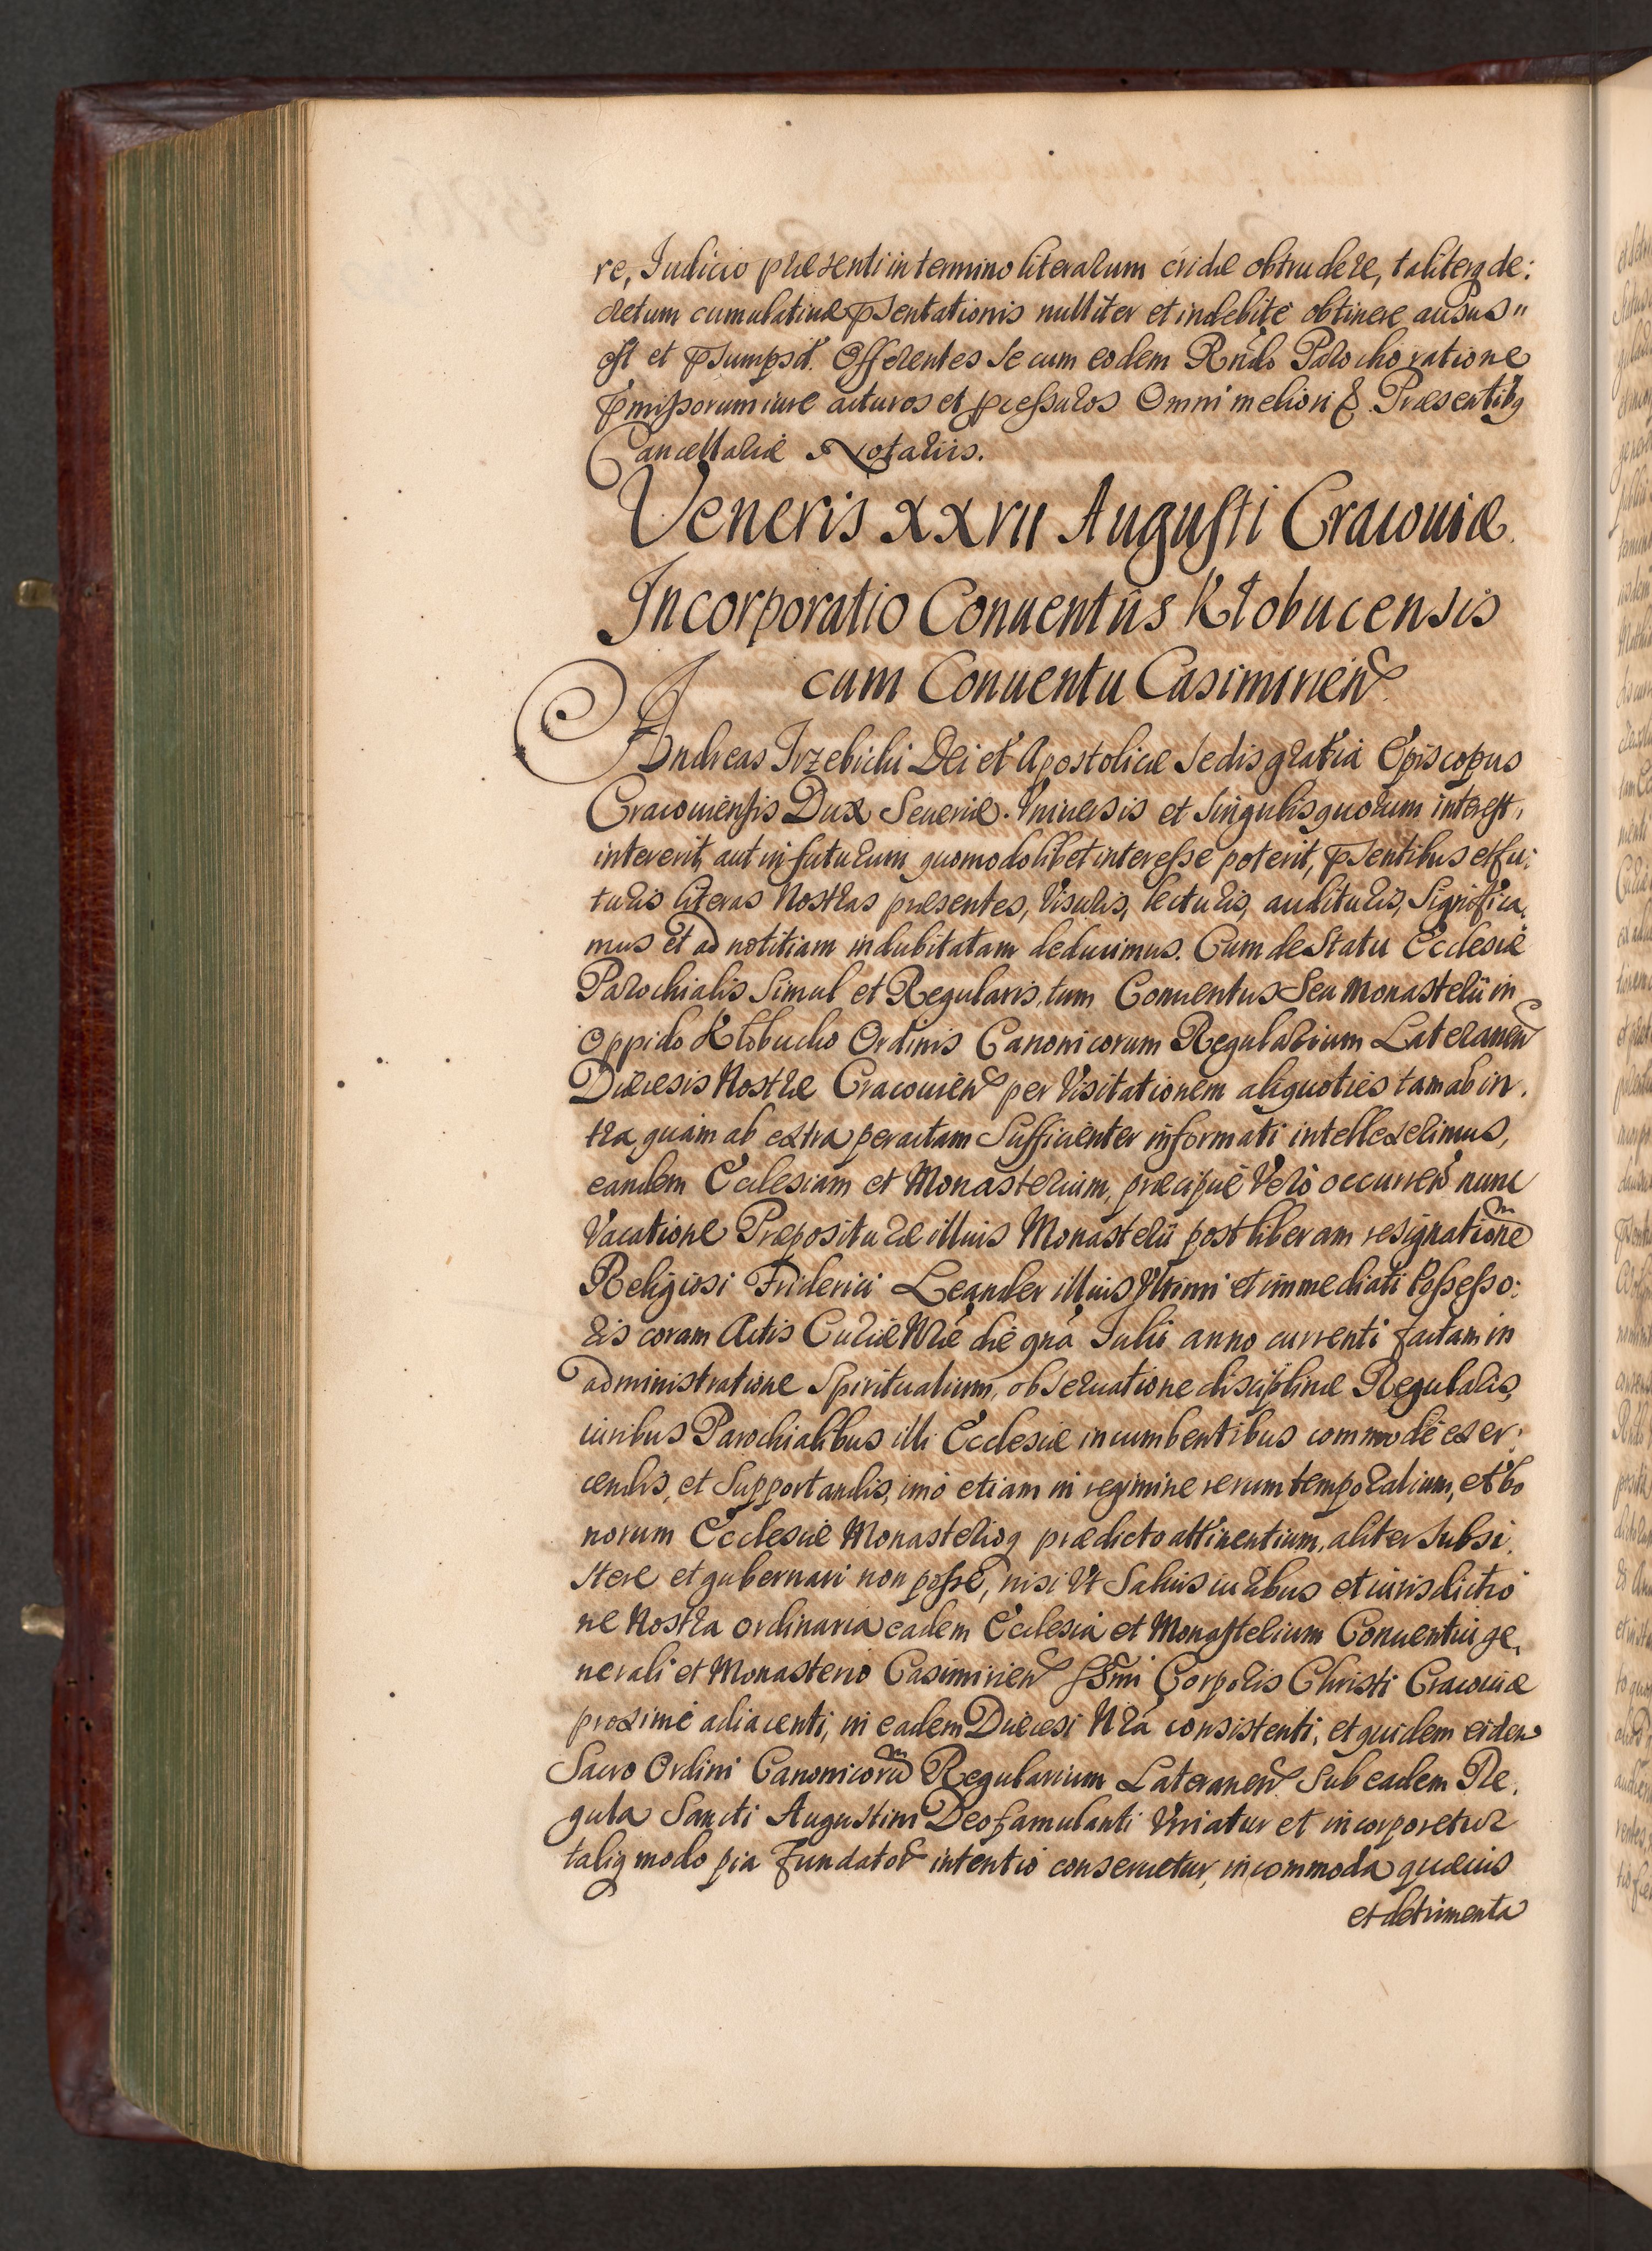 re, Iudicio præsenti in termino literarum eidæ obtrudere, taliterq de:
cretum cumulatiuæ psentationis nulliter et indebitè obtinere ausus"
est et psumpsit. Offerentes se cum eodem Rndo Parocho ratione
pmissorum iure acturos et pcessuros Omni meliori &. Præsentibq
Cancellariæ Notariis.
Veneris xxvii Augusti Cracouiæ.
Incorporatio Conuentûs Kłobucensis
cum Conuentu Casimirien
Andreas Trzebicki Dei et Apostolicæ Sedis gratiâ Episcopus
Cracouiensis Dux Seueriæ. Vniuersis et singulis quorum interest,
intererit, aut in futurum quomodolibet interesse poterit, psentibus et fu:
turis literas Nostras præsentes, Visuris, lecturis, audituris, Significa,
mus et ad notitiam indubitatam deducimus. Cum de Statu Ecclesiæ
Parochialis Simul et Regularis, tum Conuentus Seu Monasterii in
Oppido Kłobucko Ordinis Canonicorum Regularium Lateranen
Diæcesis Nostræ Cracouien per Visitationem aliquoties tam ab in,
tra quàm ab extra peractam Sufficienter informati intellexerimus,
eandem Ecclesiam et Monasterium, præcipuè Verò occurren nunc
Vacatione Præpositurae illius Monasterii post liberam resignationem
Religiosi Friderici Leander illius Vltimi et immediati Possesso:
ris coram Actis Curiæ Nræ die qna Iulii anno currenti factam in
administratione Spiritualium, obseruatione disciplinæ Regularis,
iuribus Parochialibus illi Ecclesiæ incumbentibus commodè exer:
cendis, et Supportandis, imò etiam in regimine rerum temporalium, et bo
norum Ecclesiæ Monasterioq prædicto attinentium, aliter Subsi,
stere et gubernari non posse, nisi Vt Saluis iuribus et iurisdictio
ne Nostra ordinaria eadem Ecclesia et Monasterium Conuentui ge,
nerali et Monasterio Casimirien SSmi Corporis Christi Cracouiæ
proximè adiacenti, in eadem Diæcesi Nra consistenti, et quidem eidem
Sacro Ordini Canonicorum Regularium Lateranen Sub eadem Re,
gula Sancti Augustini Deo famulanti Vniatur et incorporetur
taliq modo pia Fundator intentio conseruetur, incommoda quæuis
et detrimenta